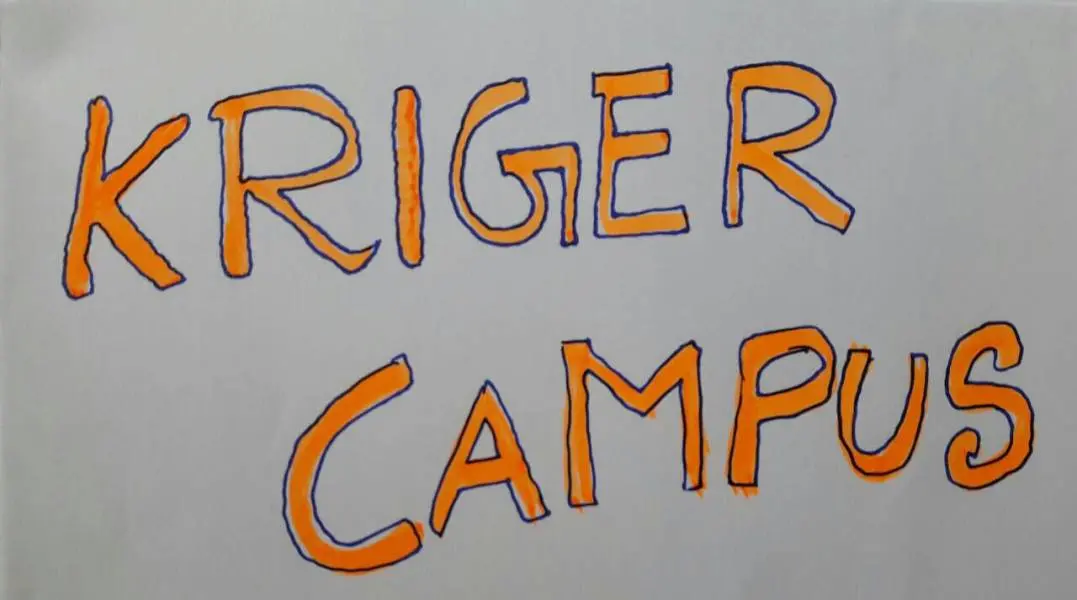 KRIGER
CAMPUS